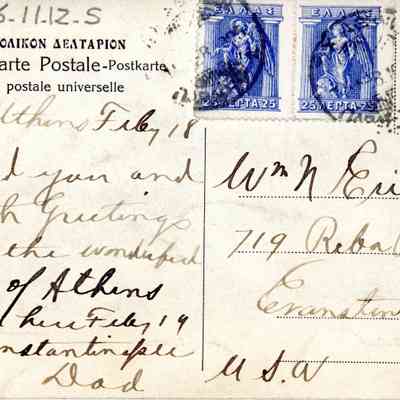 6-11.12-S
ΟΛΙΚΟΝ ΔΕΛΤΑΡΙΟΝ
arte Postale-Postkarte
postale universelle
ΕΛΛΑΣ
25 ΛΕΠΤΑ 25
ΕΛΛΑΣ
25 ΛΕΠΤΑ 25
Athens Feby 18
d you and
h Greetings
the wonderful
of Athens
here Feby 19
onstantinople
Dad
Wm N Eri
719 Reba
Evanston
U.S.A